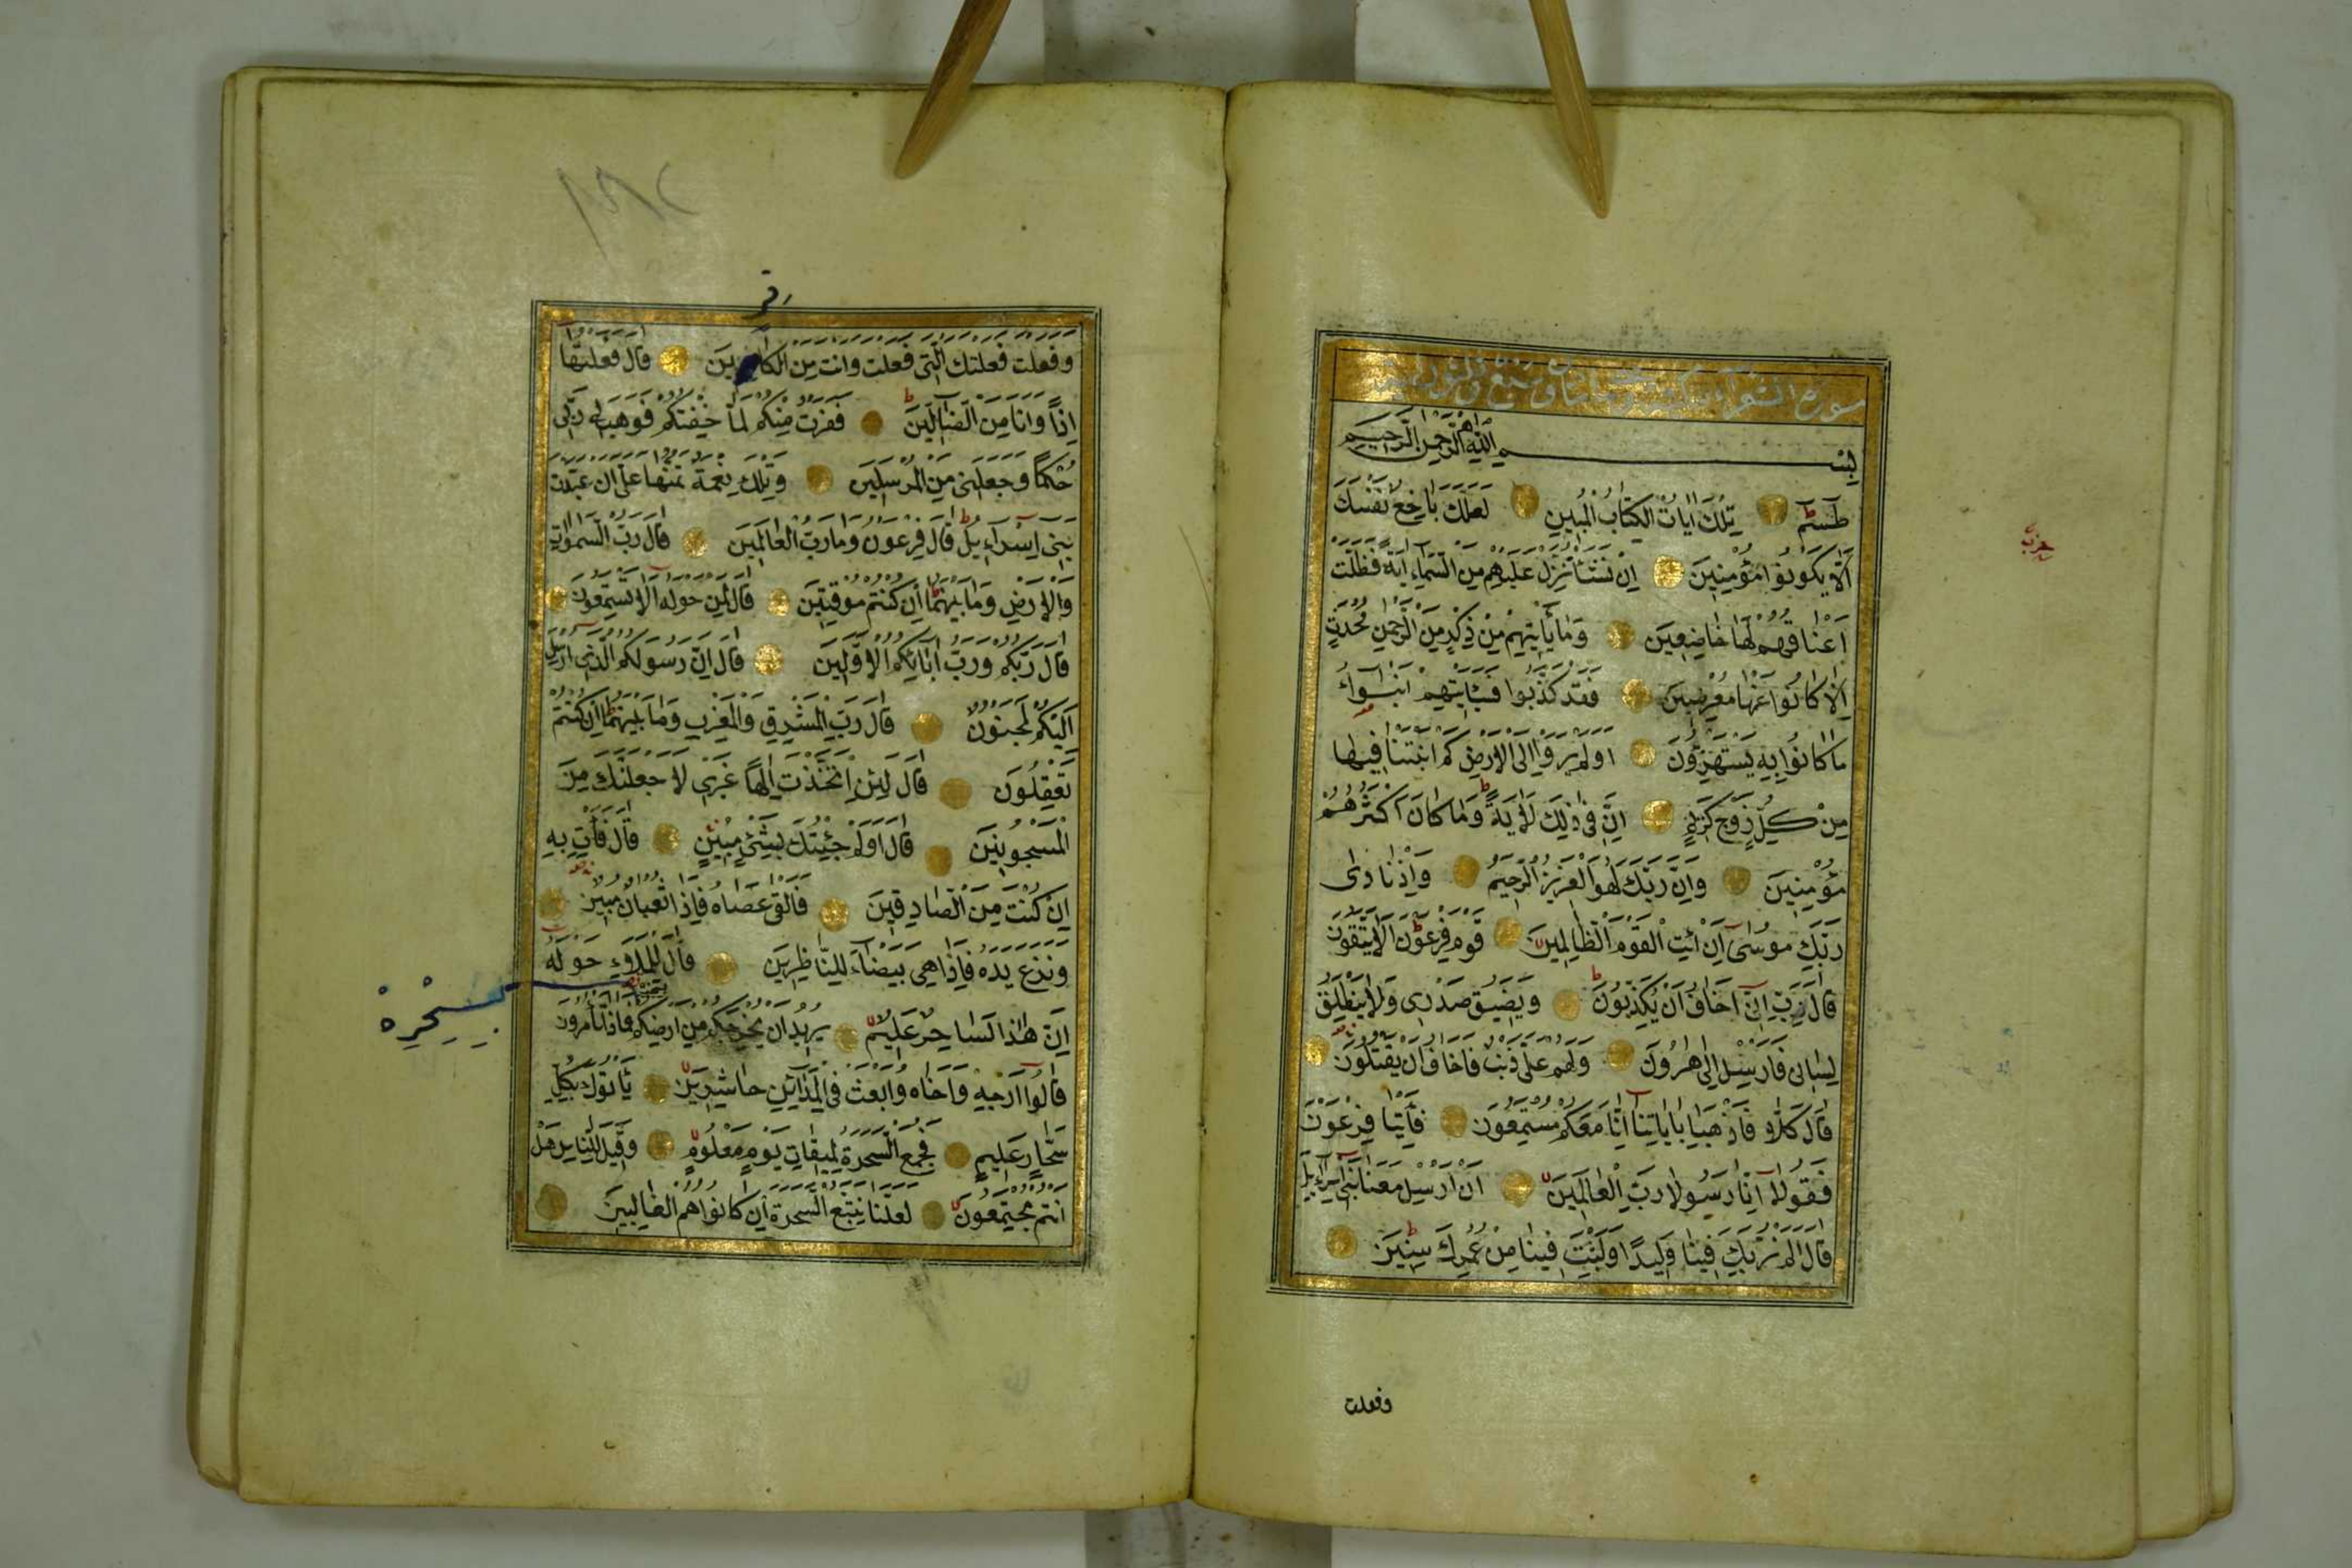 سورة الشعرآء
بسم الله الرحمن الرحيم
طسٓمٓ تِلْكَ اٰيَاتُ الْكِتَابِ الْمُبِينِ لَعَلَّكَ بَاخِعٌ نَفْسَكَ
اَلَّا يَكُونُوا مُؤْمِنِينَ اِنْ نَشَأْ نُنَزِّلْ عَلَيْهِمْ مِنَ السَّمَاءِ اٰيَةً فَظَلَّتْ
اَعْنَاقُهُمْ لَهَا خَاضِعِينَ وَمَا يَأْتِيهِمْ مِنْ ذِكْرٍ مِنَ الرَّحْمٰنِ مُحْدَثٍ
اِلَّا كَانُوا عَنْهَا مُعْرِضِينَ فَقَدْ كَذَّبُوا فَسَيَأْتِيهِمْ اَنْبٰٓؤُا
مَا كَانُوا بِهِ يَسْتَهْزِؤُنَ اَوَلَمْ يَرَوْا اِلَى الْاَرْضِ كَمْ اَنْبَتْنَا فِيهَا
مِنْ كُلِّ زَوْجٍ كَرِيمٍ اِنَّ فِى ذٰلِكَ لَاٰيَةً وَمَا كَانَ اَكْثَرُهُمْ
مُؤْمِنِينَ وَاِنَّ رَبَّكَ لَهُوَ الْعَزِيزُ الرَّحِيمُ وَاِذْ نَادٰى
رَبُّكَ مُوسٰى اَنِ ائْتِ الْقَوْمَ الظَّالِمِينَ قَوْمَ فِرْعَوْنَ اَلَا يَتَّقُونَ
قَالَ رَبِّ اِنِّى اَخَافُ اَنْ يُكَذِّبُونِ وَيَضِيقُ صَدْرِى وَلَا يَنْطَلِقُ
لِسَانِى فَاَرْسِلْ اِلٰى هٰرُونَ وَلَهُمْ عَلَىَّ ذَنْبٌ فَاَخَافُ اَنْ يَقْتُلُونِ
قَالَ كَلَّا فَاذْهَبَا بِاٰيَاتِنَا اِنَّا مَعَكُمْ مُسْتَمِعُونَ فَأْتِيَا فِرْعَوْنَ
فَقُولَا اِنَّا رَسُولَا رَبِّ الْعَالَمِينَ اَنْ اَرْسِلْ مَعَنَا بَنِى اِسْرَاءِيلَ
قَالَ اَلَمْ نُرَبِّكَ فِينَا وَلِيدًا وَلَبِثْتَ فِينَا مِنْ عُمُرِكَ سِنِينَ
وفعلت
حزب
وَفَعَلْتَ فَعْلَتَكَ الَّتِى فَعَلْتَ وَاَنْتَ مِنَ الْكَافِرِينَ قَالَ فَعَلْتُهَا
اِذًا وَاَنَا مِنَ الضَّالِّينَ فَفَرَرْتُ مِنْكُمْ لَمَّا خِفْتُكُمْ فَوَهَبَ لِى رَبِّى
حُكْمًا وَجَعَلَنِى مِنَ الْمُرْسَلِينَ وَتِلْكَ نِعْمَةٌ تَمُنُّهَا عَلَىَّ اَنْ عَبَّدْتَ
بَنِى اِسْرَاءِيلَ قَالَ فِرْعَوْنُ وَمَا رَبُّ الْعَالَمِينَ قَالَ رَبُّ السَّمٰوَاتِ
وَالْاَرْضِ وَمَا بَيْنَهُمَا اِنْ كُنْتُمْ مُوقِنِينَ قَالَ لِمَنْ حَوْلَهُ اَلَا تَسْتَمِعُونَ
قَالَ رَبُّكُمْ وَرَبُّ اٰبَائِكُمُ الْاَوَّلِينَ قَالَ اِنَّ رَسُولَكُمُ الَّذِى اُرْسِلَ
اِلَيْكُمْ لَمَجْنُونٌ قَالَ رَبُّ الْمَشْرِقِ وَالْمَغْرِبِ وَمَا بَيْنَهُمَا اِنْ كُنْتُمْ
تَعْقِلُونَ قَالَ لَئِنِ اتَّخَذْتَ اِلٰهًا غَيْرِى لَاَجْعَلَنَّكَ مِنَ
الْمَسْجُونِينَ قَالَ اَوَلَوْ جِئْتُكَ بِشَىْءٍ مُبِينٍ قَالَ فَأْتِ بِهِ
اِنْ كُنْتَ مِنَ الصَّادِقِينَ فَاَلْقٰى عَصَاهُ فَاِذَا ثُعْبَانٌ مُبِينٌ
وَنَزَعَ يَدَهُ فَاِذَا هِىَ بَيْضَاءُ لِلنَّاظِرِينَ قَالَ لِلْمَلَاِ حَوْلَهُ
اِنَّ هٰذَا لَسَاحِرٌ عَلِيمٌ يُرِيدُ اَنْ يُخْرِجَكُمْ مِنْ اَرْضِكُمْ فَمَاذَا تَأْمُرُونَ
بِسِحْرِهْ
قَالُوا اَرْجِهْ وَاَخَاهُ وَابْعَثْ فِى الْمَدَائِنِ حَاشِرِينَ يَأْتُوكَ بِكُلِّ
سَحَّارٍ عَلِيمٍ فَجُمِعَ السَّحَرَةُ لِمِيقَاتِ يَوْمٍ مَعْلُومٍ وَقِيلَ لِلنَّاسِ هَلْ
اَنْتُمْ مُجْتَمِعُونَ لَعَلَّنَا نَتَّبِعُ السَّحَرَةَ اِنْ كَانُوا هُمُ الْغَالِبِينَ